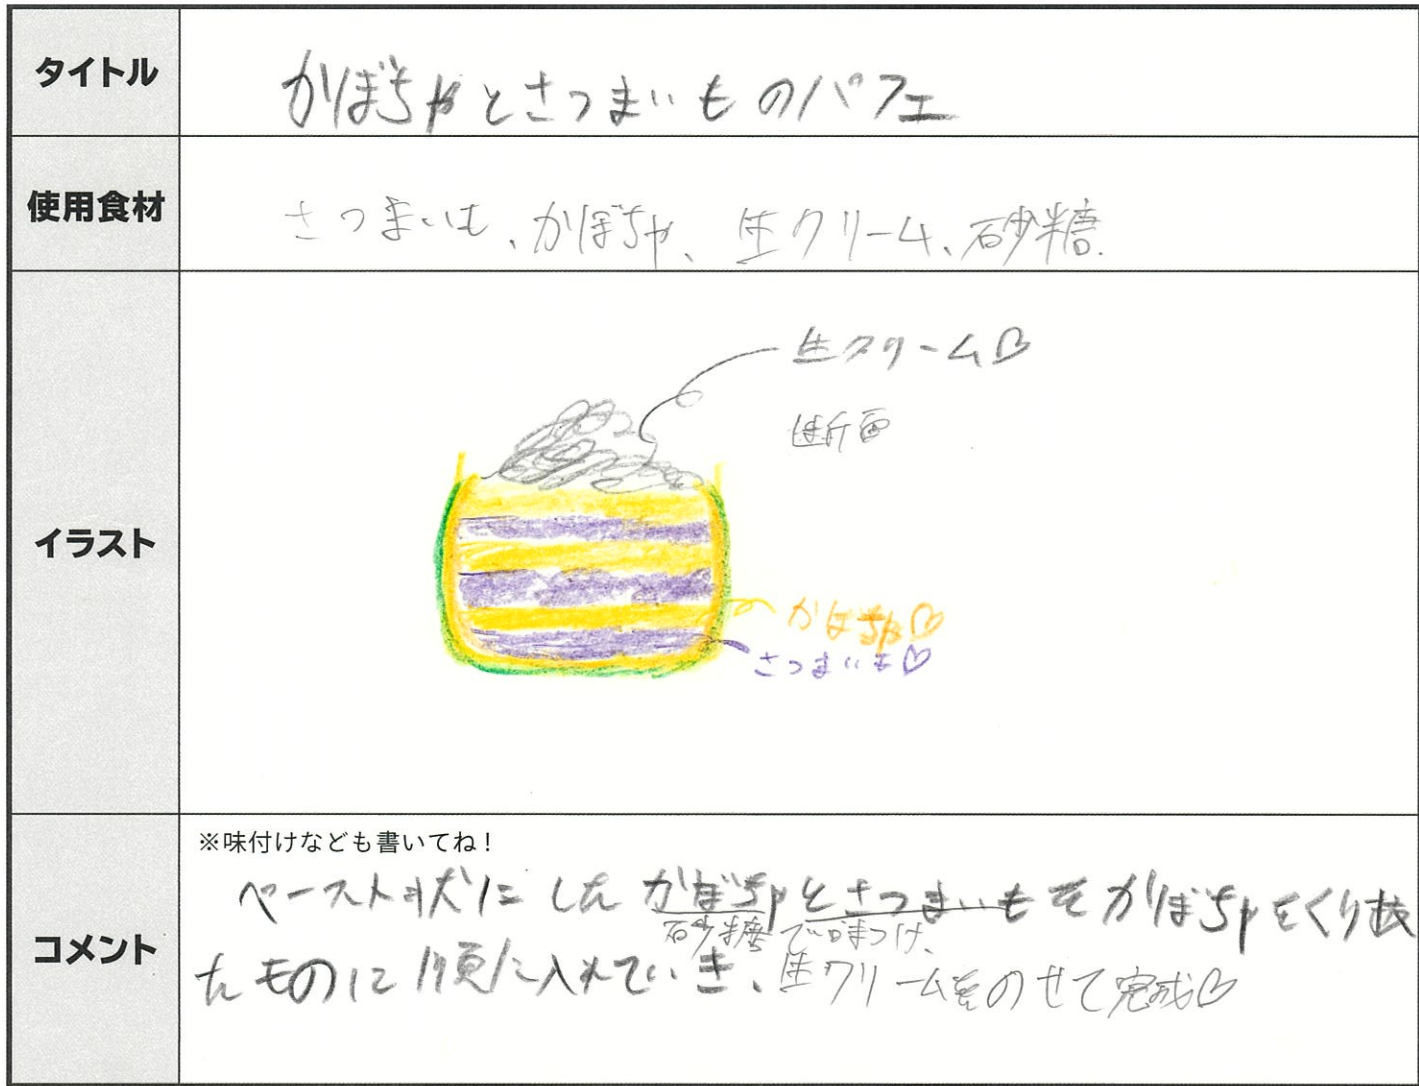 タイトル
かぼちゃとさつまいものパフェ
使用食材
さつまいも、かぼちゃ、生クリーム、砂糖.
イラスト
生クリーム♡
断面
かぼちゃ♡
さつまいも♡
コメント
※味付けなども書いてね！
ペースト状にしたかぼちゃとさつまいもをかぼちゃをくり抜
砂糖で味つけ、
たものに順に入れていき、生クリームをのせて完成♡